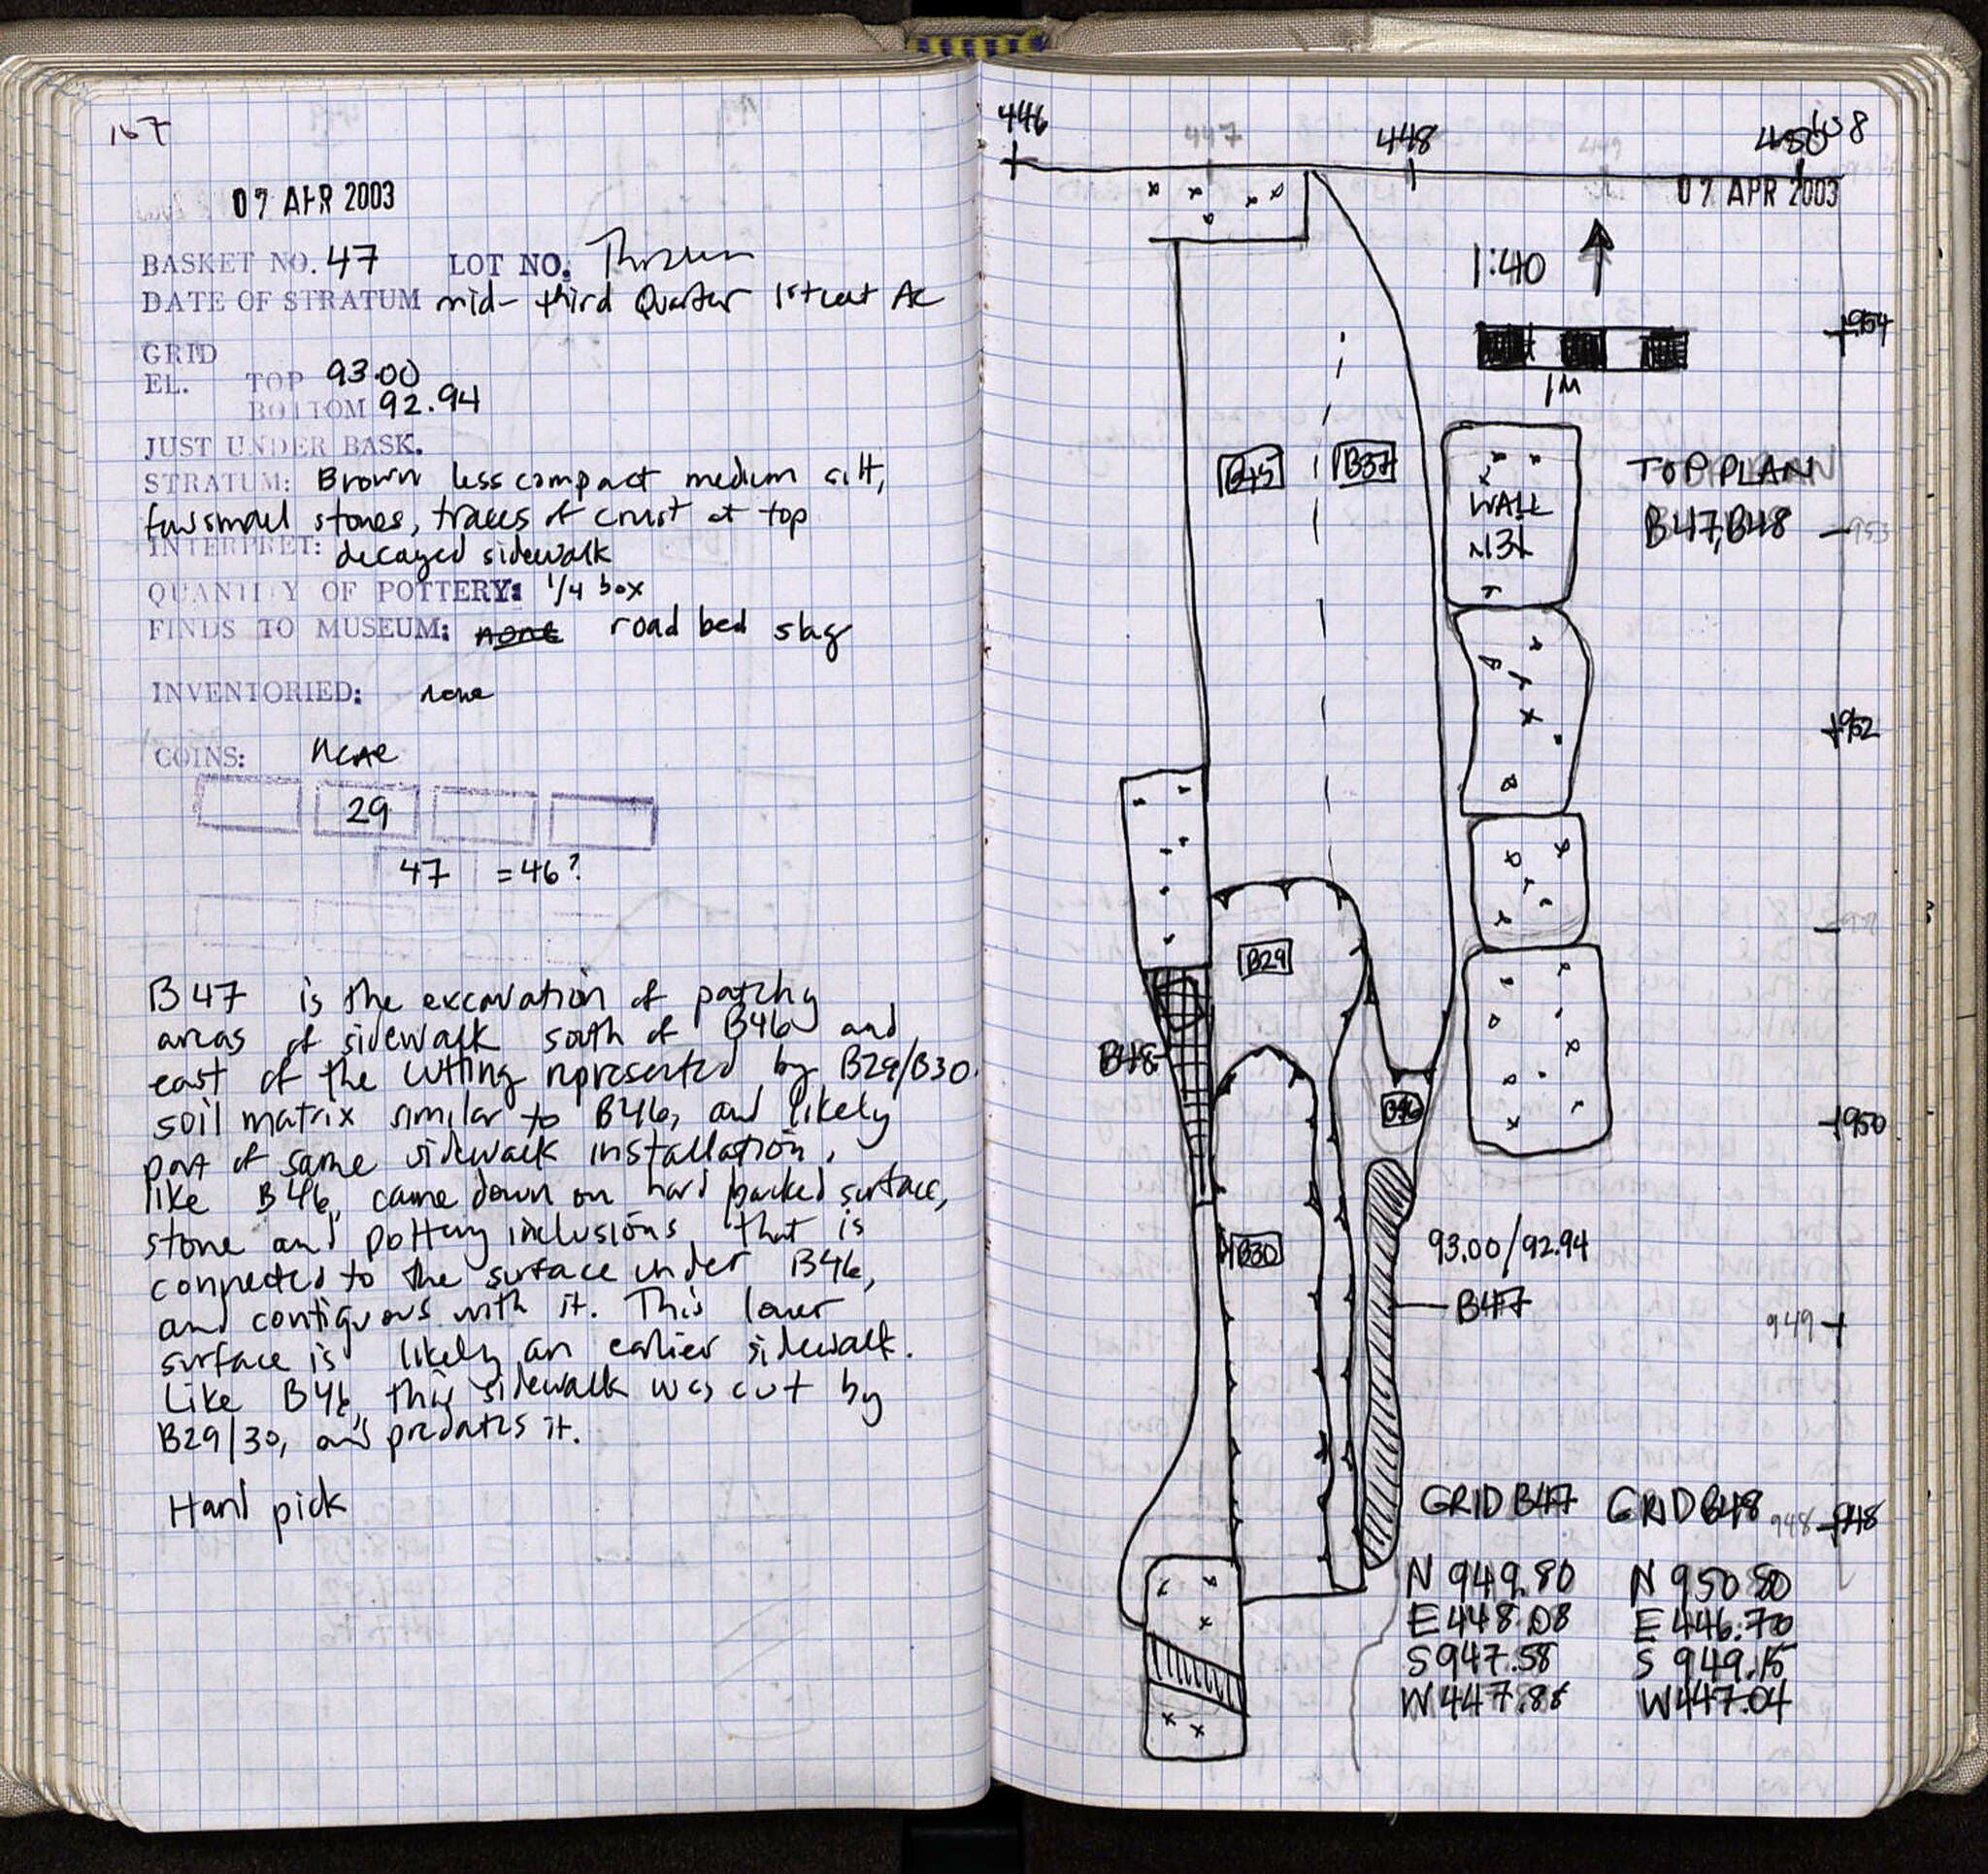 167
07 APR 2003
BASKET NO. 47 LOT NO.
DATE OF STRATUM mid- third Quarter 1st cent AC
GRID
EL. TOP 93.00
BOTTOM 92.94
JUST UNDER BASK.
STRATUM: Brown less compact medium silt,
few small stones, traces of crust at top
INTERPRET: decayed sidewalk
QUANTITY OF POTTERY: 1/4 box
FINDS TO MUSEUM: none road bed slag
INVENTORIED: none
COINS: none
29
47 = 46?
B47 is the excavation of patchy
areas of sidewalk south of B46 and
east of the cutting represented by B29/B30.
soil matrix similar to B46, and likely
part of same sidewalk installation.
like B46, came down on hard packed surface,
stone and pottery inclusions, that is
connected to the surface under B46,
and contiguous with it. This lower
surface is likely an earlier sidewalk.
Like B46, this sidewalk was cut by
B29/30, and predates it.
Hand pick
168
446 447 448 449 450
07 APR 2003
1:40
954
1M
B45 B37
WALL
N31
TOP PLAN
B47, B48
953
952
951
B29
B48
B46
950
B30
93.00/92.94
B47
949
GRID B47 GRID B48
948 948
N 949.80 N 950.80
E 448.08 E 446.70
S 947.58 S 949.15
W 447.88 W 447.04